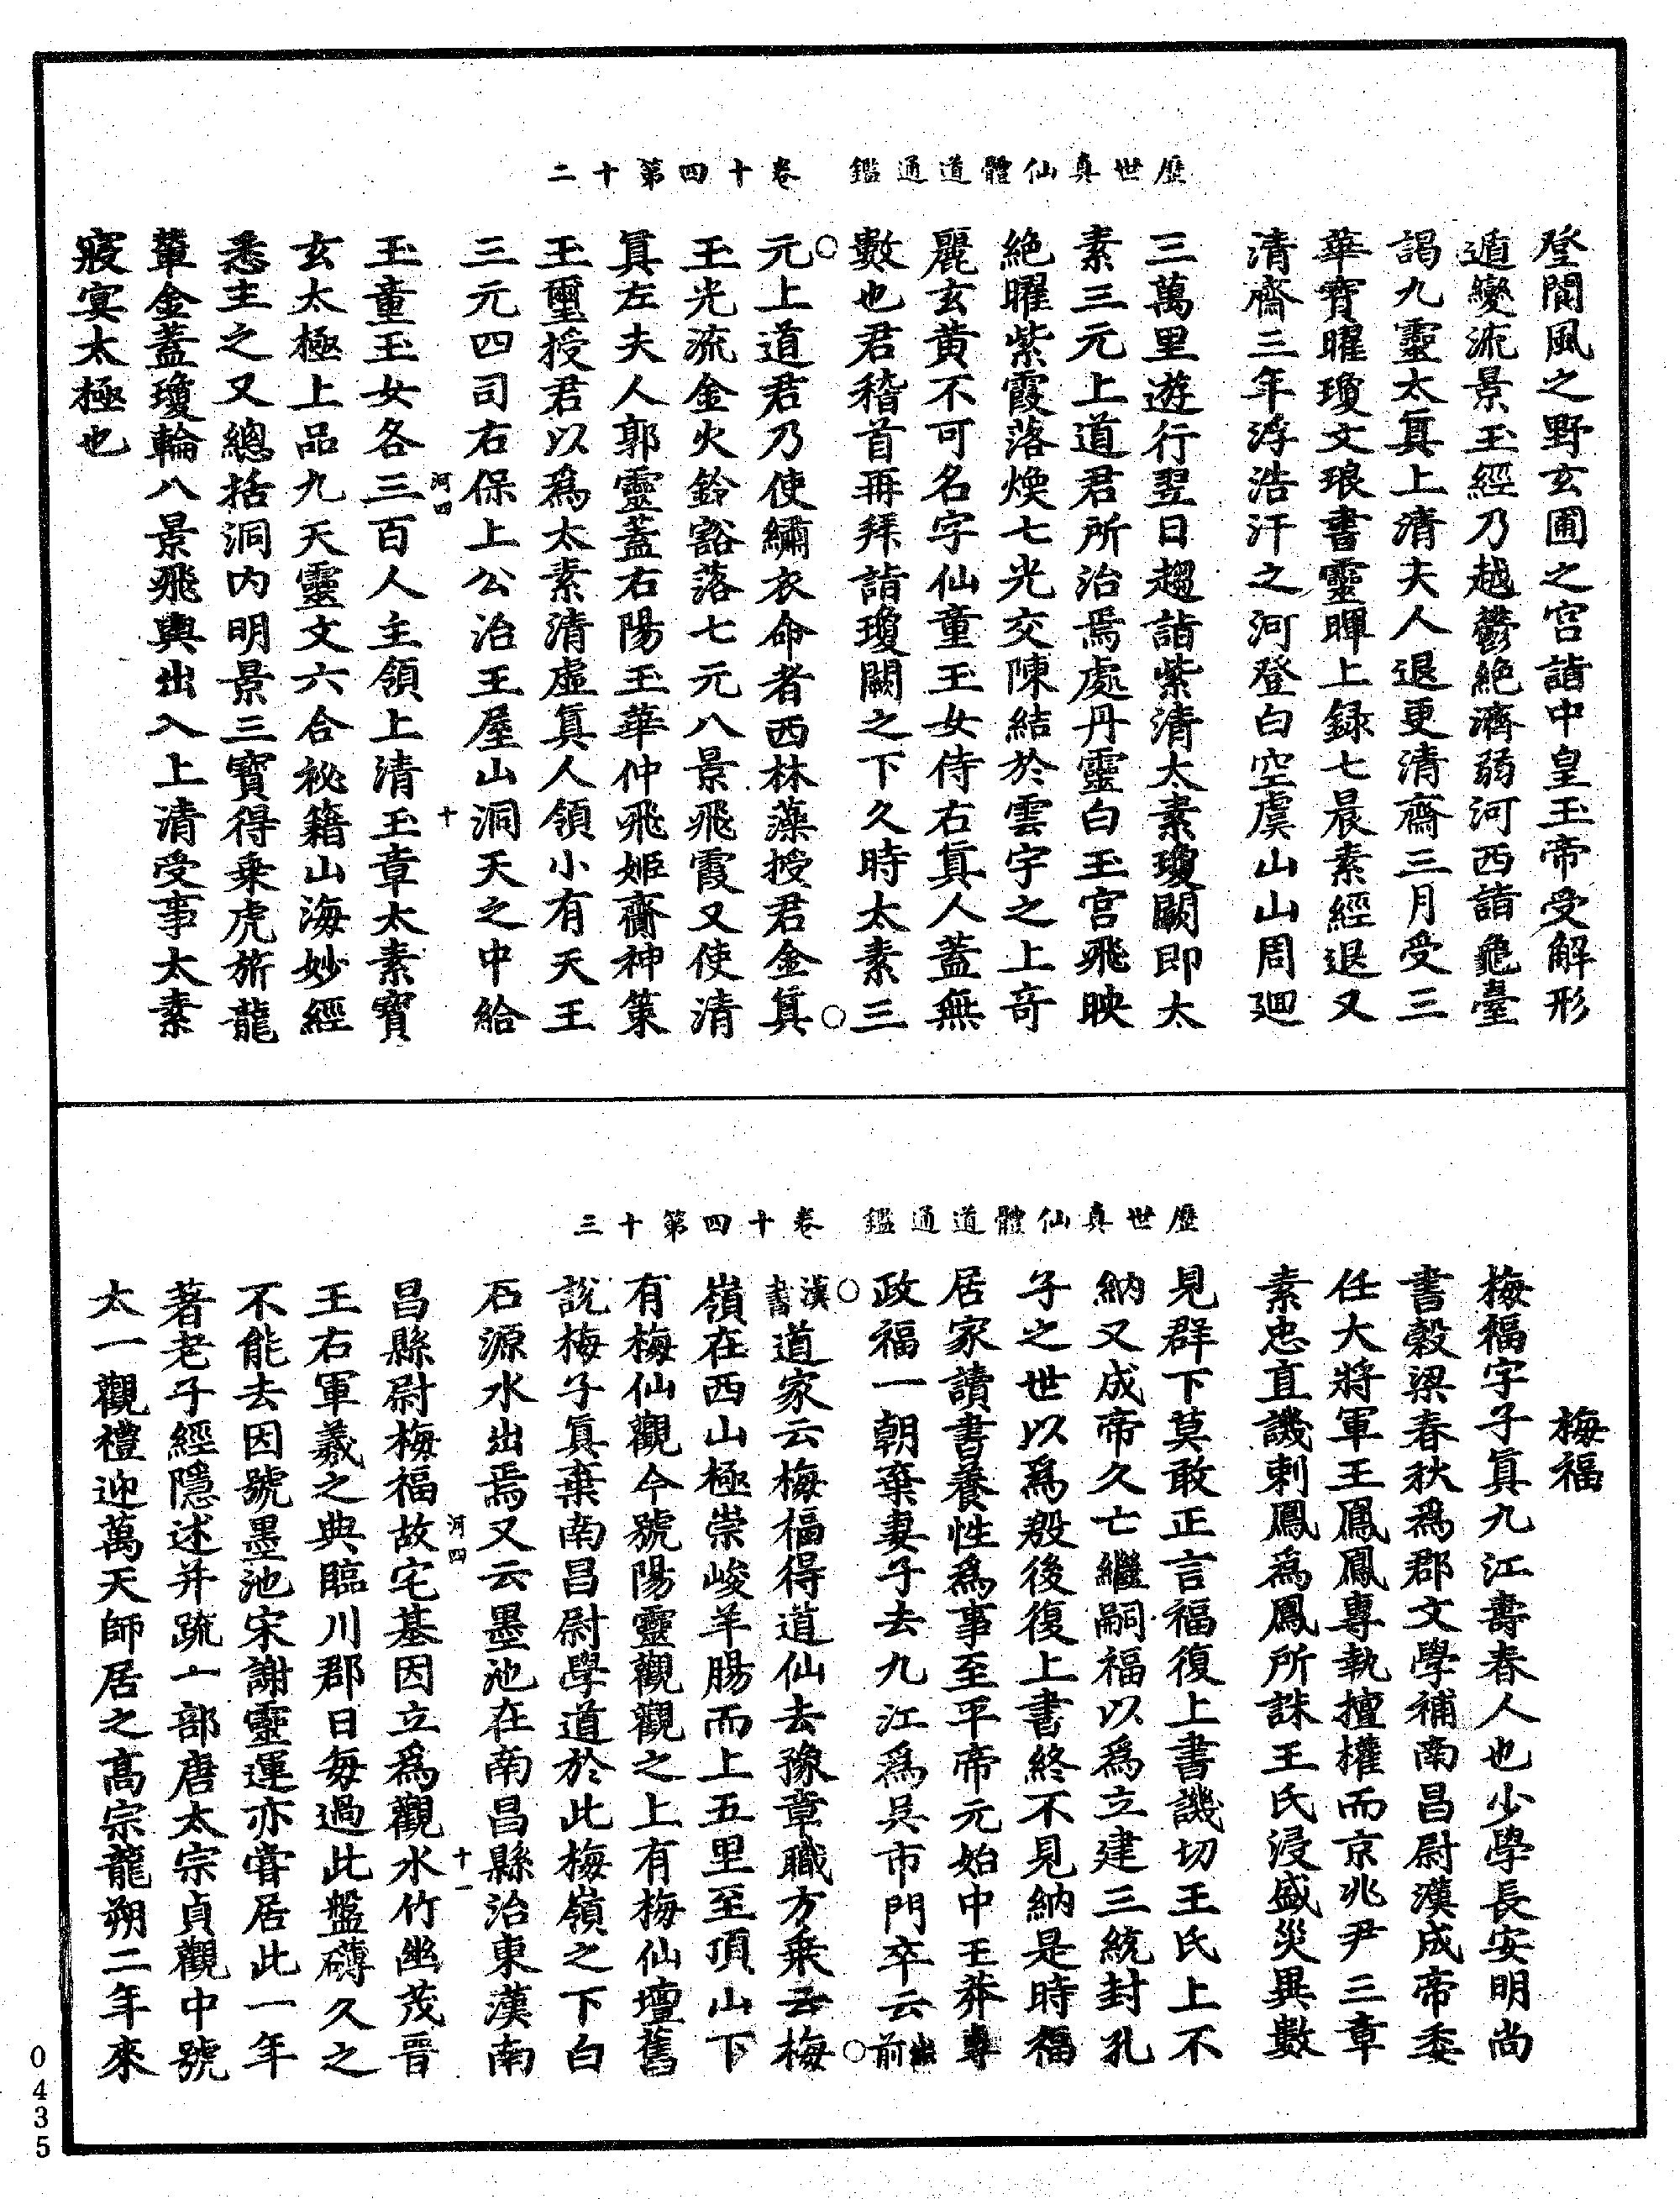 歷世真仙體道通鑑　卷十四第十二
登閬風之野玄圃之宫詣中皇玉帝受解形
遁變流景玉經乃越鬱絶濟弱河西詣龜臺
謁九靈太真上清夫人退更清齋三月受三
華寶曜瓊文琅書靈暉上録七晨素經退又
清齋三年浮浩汗之河登白空虞山山周廻
三萬里遊行翌日趨詣紫清太素瓊闕即太
素三元上道君所治焉處丹靈白玉宫飛映
絶曜紫霞落煥七光交陳結於雲宇之上奇
麗玄黄不可名字仙童玉女侍右真人蓋無
數也君稽首再拜詣瓊闕之下久時太素三
元上道君乃使繡衣命者西林藻授君金真
玉光流金火鈴豁落七元八景飛霞又使清
真左夫人郭靈蓋右陽玉華仲飛姬齎神策
玉璽授君以爲太素清虚真人領小有天王
三元四司右保上公治王屋山洞天之中給
河四　十
玉童玉女各三百人主領上清玉章太素寶
玄太極上品九天靈文六合祕籍山海妙經
悉主之又總括洞内明景三寶得乗虎旂龍
輦金蓋瓊輪八景飛輿出入上清受事太素
寢宴太極也
歷世真仙體道通鑑　卷十四第十三
梅福
梅福字子真九江壽春人也少學長安明尚
書穀梁春秋爲郡文學補南昌尉漢成帝委
任大將軍王鳳鳳專執擅權而京兆尹三章
素忠直譏刺鳳爲鳳所誅王氏浸盛災異數
見群下莫敢正言福復上書譏切王氏上不
納又成帝久亡繼嗣福以爲立建三統封孔
子之世以爲殷後復上書終不見納是時福
居家讀書養性爲事至平帝元始中王莽專
政福一朝棄妻子去九江爲吳市門卒云前
漢書道家云梅福得道仙去豫章職方乗云梅
嶺在西山極崇峻羊腸而上五里至頂山下
有梅仙觀今號陽靈觀觀之上有梅仙壇舊
說梅子真棄南昌尉學道於此梅嶺之下白
石源水出焉又云墨池在南昌縣治東漢南
河四　十一
昌縣尉梅福故宅基因立爲觀水竹幽茂晋
王右軍羲之典臨川郡日每過此盤礴久之
不能去因號墨池宋謝靈運亦嘗居此一年
著老子經隱述并疏一部唐太宗貞觀中號
太一觀禮迎萬天師居之髙宗龍朔二年來
0435